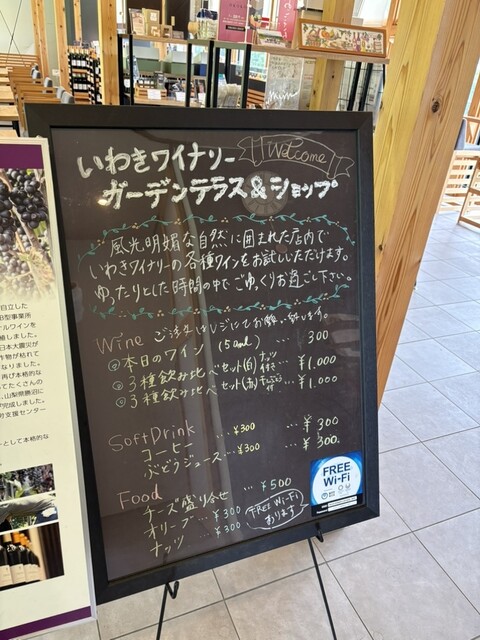 Welcome
いわきワイナリー
ガーデンテラス&ショップ
風光明媚な自然に囲まれた店内で
いわきワイナリーの各種ワインをお試しいただけます。
ゆったりとした時間の中でごゆっくりお過ごし下さい。
Wine ご注文はレジにてお願い致します。
本日のワイン (50ml) ... 300
3種飲み比べセット(白) ナッツ付 ... ¥1,000
3種飲み比べセット(赤) 付 ... ¥1,000
Soft Drink
コーヒー ...¥300 ... ¥300
ぶどうジュース...¥300 ... ¥300.
Food
チーズ盛り合せ ... ¥500
オリーブ ... ¥300
ナッツ ... ¥300
FREE Wi-Fi
あります
FREE
Wi-Fi
自立した
型事業所
ールワインを
植しました。
日本大震災が
作物が枯れて
なりました。
再び本格的な
てたくさんの
が完成しました。
、山梨県勝沼に
労支援センター
ーとして本格的な